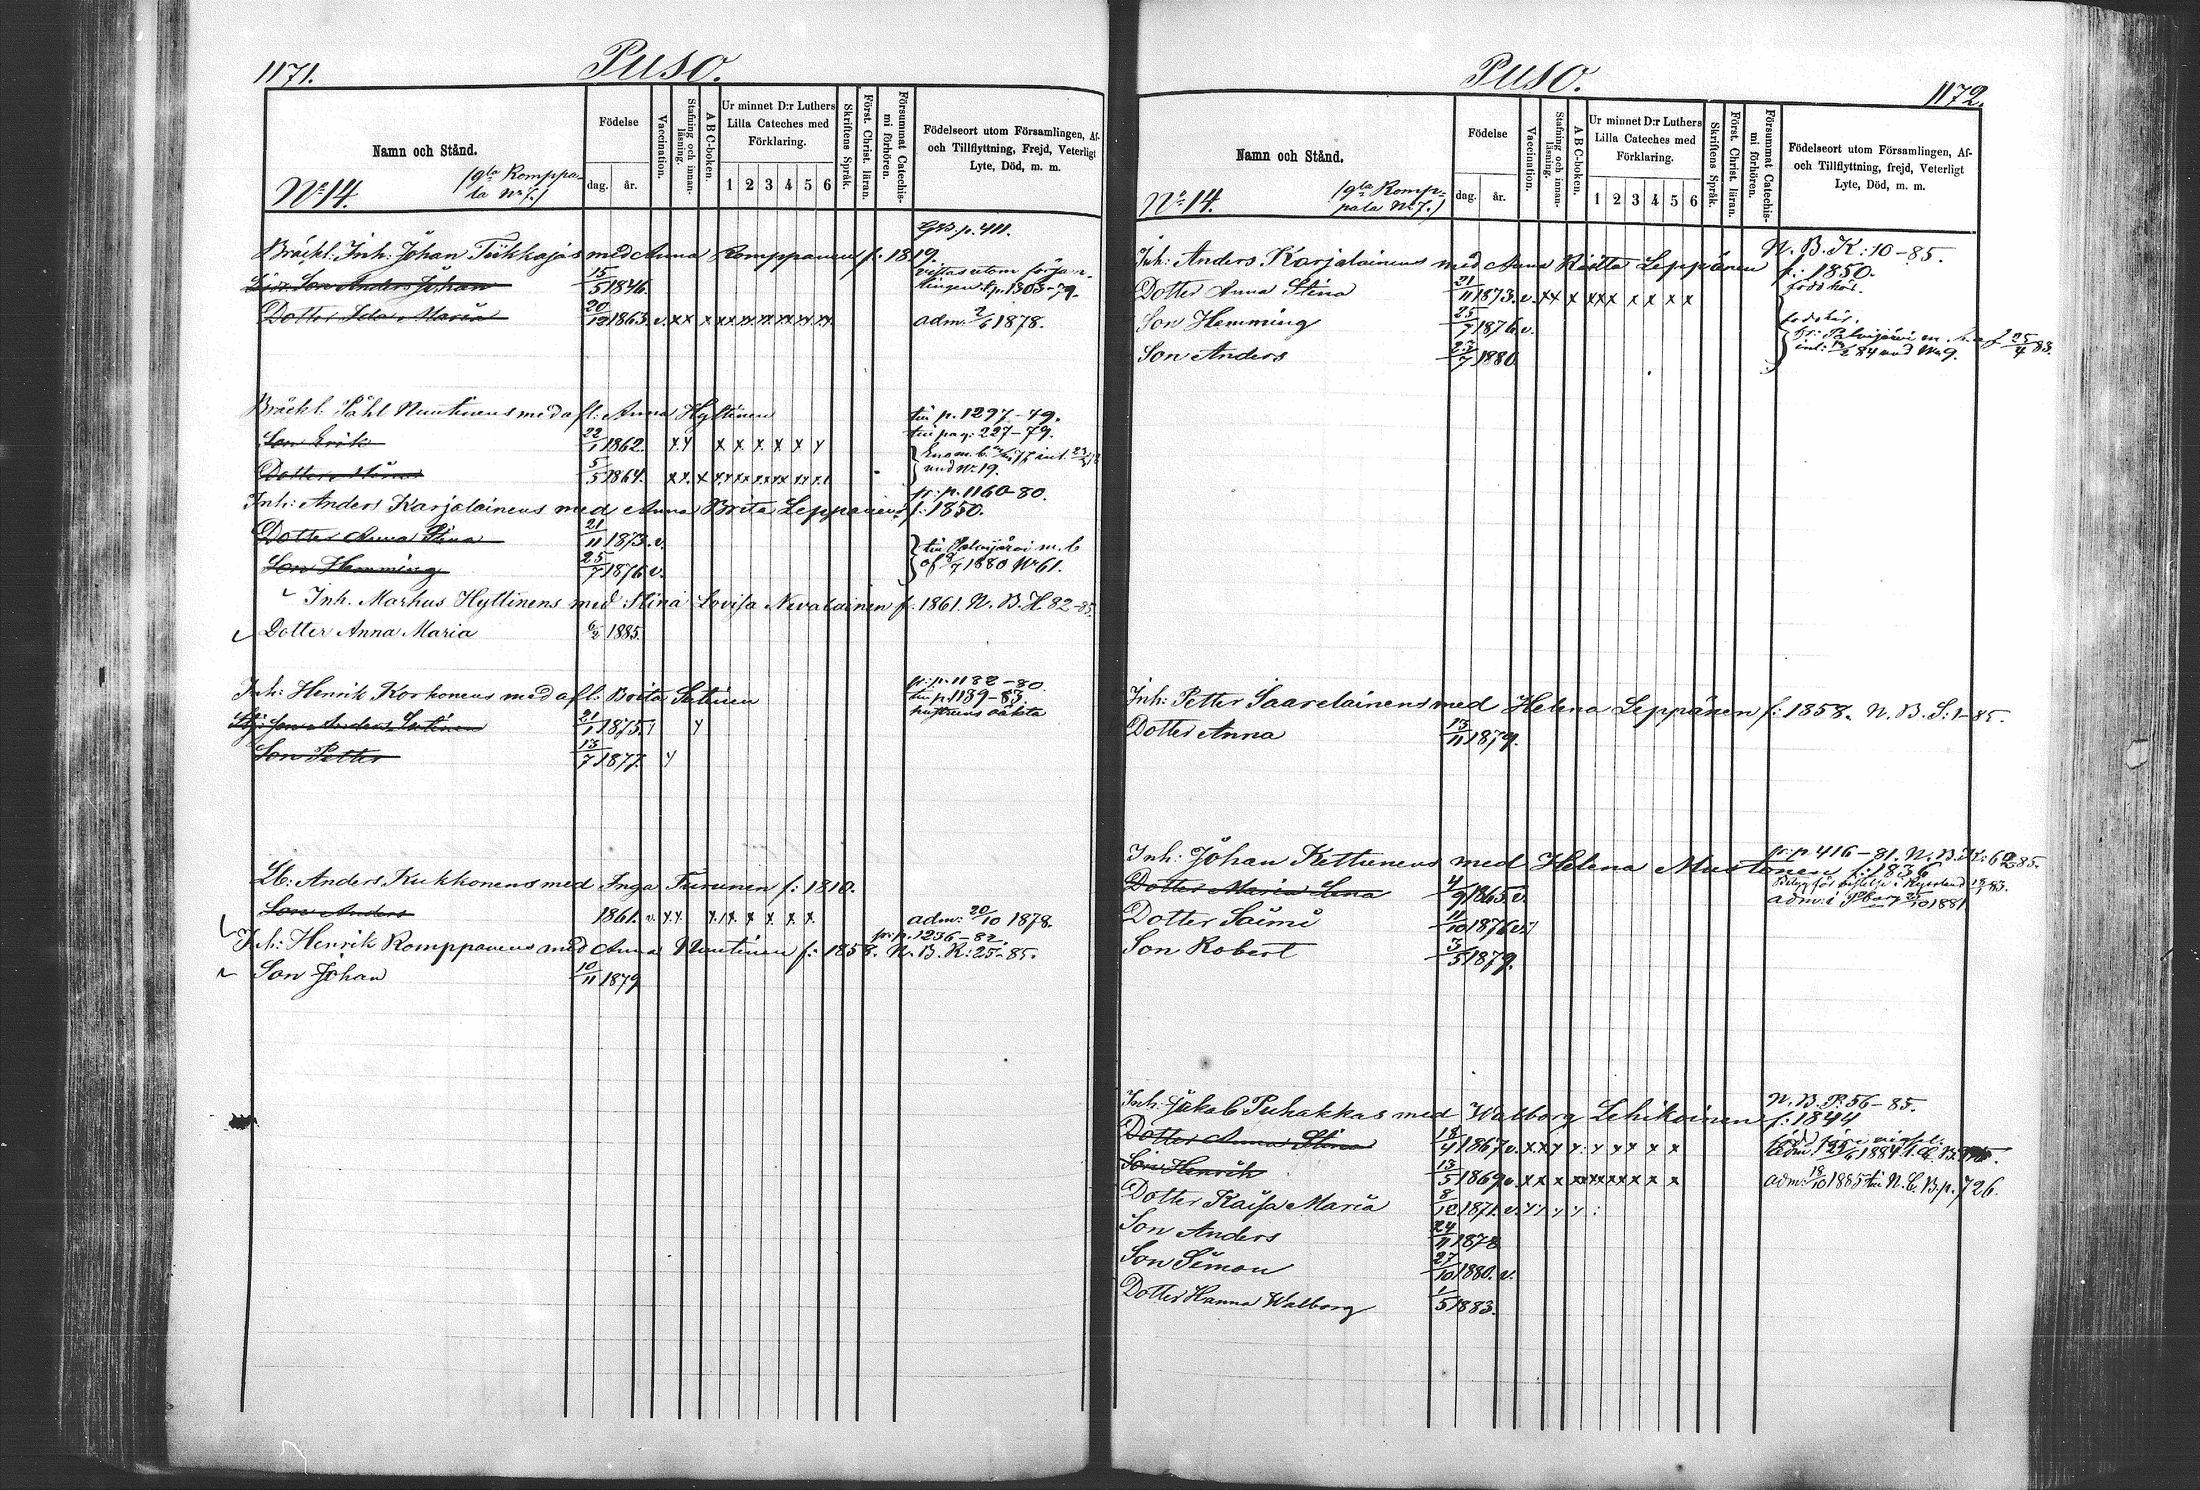 1171.
Puso.
Namn och Stånd.
Födelse
dag.
år.
Vaccination.
Stafning och innanläsning.
A B C-boken.
Ur minnet D:r Luthers
Lilla Cateches med
Förklaring.
1 2 3 4 5 6
Skriftens Språk.
Först. Christ. läran.
Försummat Catechismi förhören.
Födelseort utom Församlingen, Af-
och Tillflyttning, Frejd, Veterligt
Lyte, Död, m. m.
No 14.
(gla Romppa-
la No 7.)
p. 411.
Bräckl. Inh: Johan Tiikkajas med Anna Romppanen f: 1819.
Son Anders Johan 15/5 1846. vistas utom försam-
lingen p. 1303-79.
Dotter Ida Maria 20/12 1863. v. xx x xx xx xx xx xx xx adm: 2/6 1878.
Bräckl. Påhl Nuutinens med afl: Anna Hyttinen till p. 1297-79.
Son Erik 22/1 1862. x x x x x x x x till pag: 227-79.
Dotter 5/5 1864.
und No 19.
fr: p. 1160-80.
Inh: Anders Karjalainens med Anna Brita Leppänen f: 1850.
Dotter Anna Stina 21/11 1873. v.
Son Hemming 25/7 1876 v.
till Palvijärvi m. b
af 1880 No 61.
Inh. Markus Hyttinens med Stina Lovisa Nevalainen f: 1861. N. B. H. 82-85.
Dotter Anna Maria 6/2 1885.
fr: p. 1182-80
Inh: Henrik Korhonens med afl: Brita Sutinen till p. 1189-83
hustruns oäkta
Son Anders Sutinen 21/1 1875.
Son Petter 13/7 1877.
Lb: Anders Kukkonens med Inga Turunen f: 1810.
Son Anders 1861. v. x x x x x x x x adm: 20/10 1878.
fr: p. 1236-82.
Inh: Henrik Romppanens med Anna Nuutinen f: 1858. N. B. R: 25-85.
Son Johan 10/11 1879
Puso.
1172.
Namn och Stånd.
Födelse
dag.
år.
Vaccination.
Stafning och innanläsning.
A B C-boken.
Ur minnet D:r Luthers
Lilla Cateches med
Förklaring.
1 2 3 4 5 6
Skriftens Språk.
Först. Christ. läran.
Försummat Catechismi förhören.
Födelseort utom Församlingen, Af-
och Tillflyttning, frejd, Veterligt
Lyte, Död, m. m.
No 14.
(gla Romp-
pala No 7.)
N. B. K: 10-85.
Inh: Anders Karjalainens med Anna Riitta Leppänen f: 1850.
Dotter Anna Stina 21/11 1873. v. xx x xxx x x x x född här.
Son Hemming 25/7 1876 v. född här.
Son Anders 23/7 1880
fr: Palvijärvi m. b. af 25/4 83.
84 und No 9.
Inh: Petter Saarelainens med Helena Leppänen f: 1858. N. B. S: 1-85.
Dotter Anna 13/11 1879.
fr: p. 416-81. N. B. K: 62-85.
Inh: Johan Kettunens med Helena Mustonen f: 1836
Dotter Maria Lena 4/9 1865. v.
adm: i 1881
Dotter Saimi 11/10 1876 v.
Son Robert 3/5 1879.
N. B. P: 56-85.
Inh: Jakob Puhakkas med Walborg Lehikoinen f: 1844
Dotter Anna Stina 18/4 1867 v.
Son Henrik 13/5 1869 v. adm: 18/10 1885 till N. C. B. p. 726.
Dotter Kaisa Maria 8/12 1871. v.
Son Anders 24/11 1878
Son Simon 27/10 1880. v.
Dotter Hanna Walborg 1/5 1883.